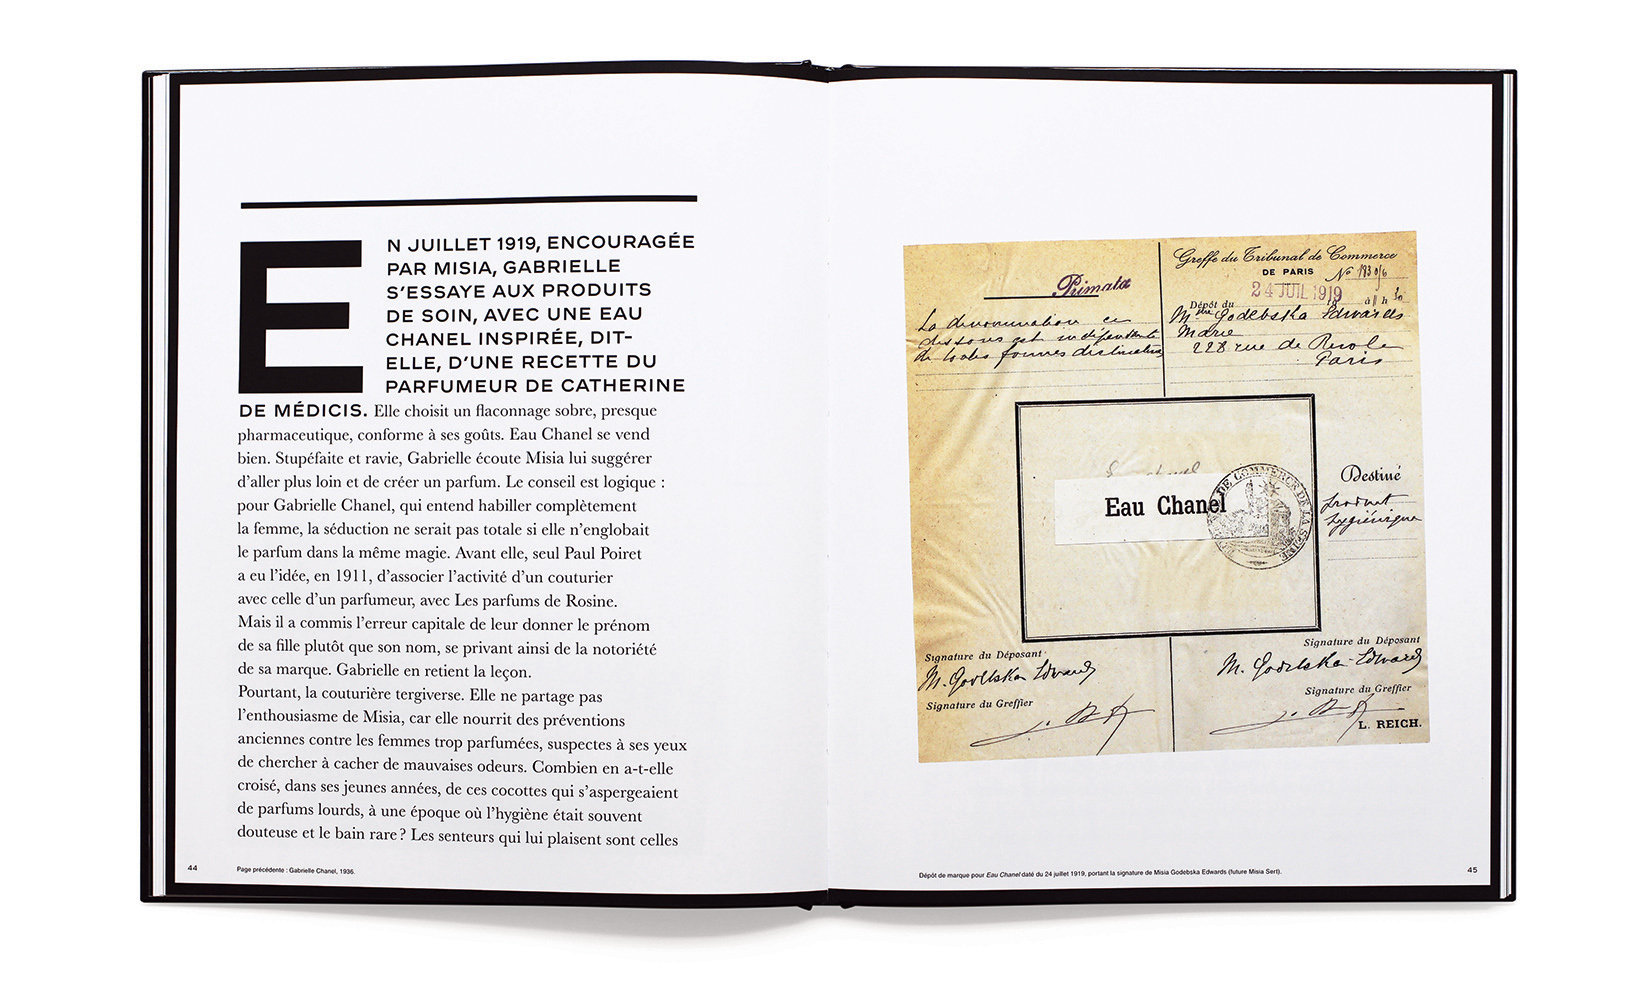 EN JUILLET 1919, ENCOURAGÉE
PAR MISIA, GABRIELLE
S’ESSAYE AUX PRODUITS
DE SOIN, AVEC UNE EAU
CHANEL INSPIRÉE, DIT-
ELLE, D’UNE RECETTE DU
PARFUMEUR DE CATHERINE
DE MÉDICIS. Elle choisit un flaconnage sobre, presque
pharmaceutique, conforme à ses goûts. Eau Chanel se vend
bien. Stupéfaite et ravie, Gabrielle écoute Misia lui suggérer
d’aller plus loin et de créer un parfum. Le conseil est logique :
pour Gabrielle Chanel, qui entend habiller complètement
la femme, la séduction ne serait pas totale si elle n’englobait
le parfum dans la même magie. Avant elle, seul Paul Poiret
a eu l’idée, en 1911, d’associer l’activité d’un couturier
avec celle d’un parfumeur, avec Les parfums de Rosine.
Mais il a commis l’erreur capitale de leur donner le prénom
de sa fille plutôt que son nom, se privant ainsi de la notoriété
de sa marque. Gabrielle en retient la leçon.
Pourtant, la couturière tergiverse. Elle ne partage pas
l’enthousiasme de Misia, car elle nourrit des préventions
anciennes contre les femmes trop parfumées, suspectes à ses yeux
de chercher à cacher de mauvaises odeurs. Combien en a-t-elle
croisé, dans ses jeunes années, de ces cocottes qui s’aspergeaient
de parfums lourds, à une époque où l’hygiène était souvent
douteuse et le bain rare ? Les senteurs qui lui plaisent sont celles
44
Page précédente : Gabrielle Chanel, 1936.
Primata
La dénomination ci
dessous est indépendante
de toutes formes distinctives
Greffe du Tribunal de Commerce
DE PARIS
No
24 JUIL 1919
Dépôt du
à 11 h 30
Godebska Edwards
Marie
228 rue de Rivoli
Paris
Eau Chanel
DE COMMERCE DE LA SEINE
Destiné
produit
hygiénique
Signature du Déposant
M. Godebska Edwards
Signature du Greffier
Signature du Déposant
M. Godebska-Edwards
Signature du Greffier
L. REICH.
Dépôt de marque pour Eau Chanel daté du 24 juillet 1919, portant la signature de Misia Godebska Edwards (future Misia Sert).
45